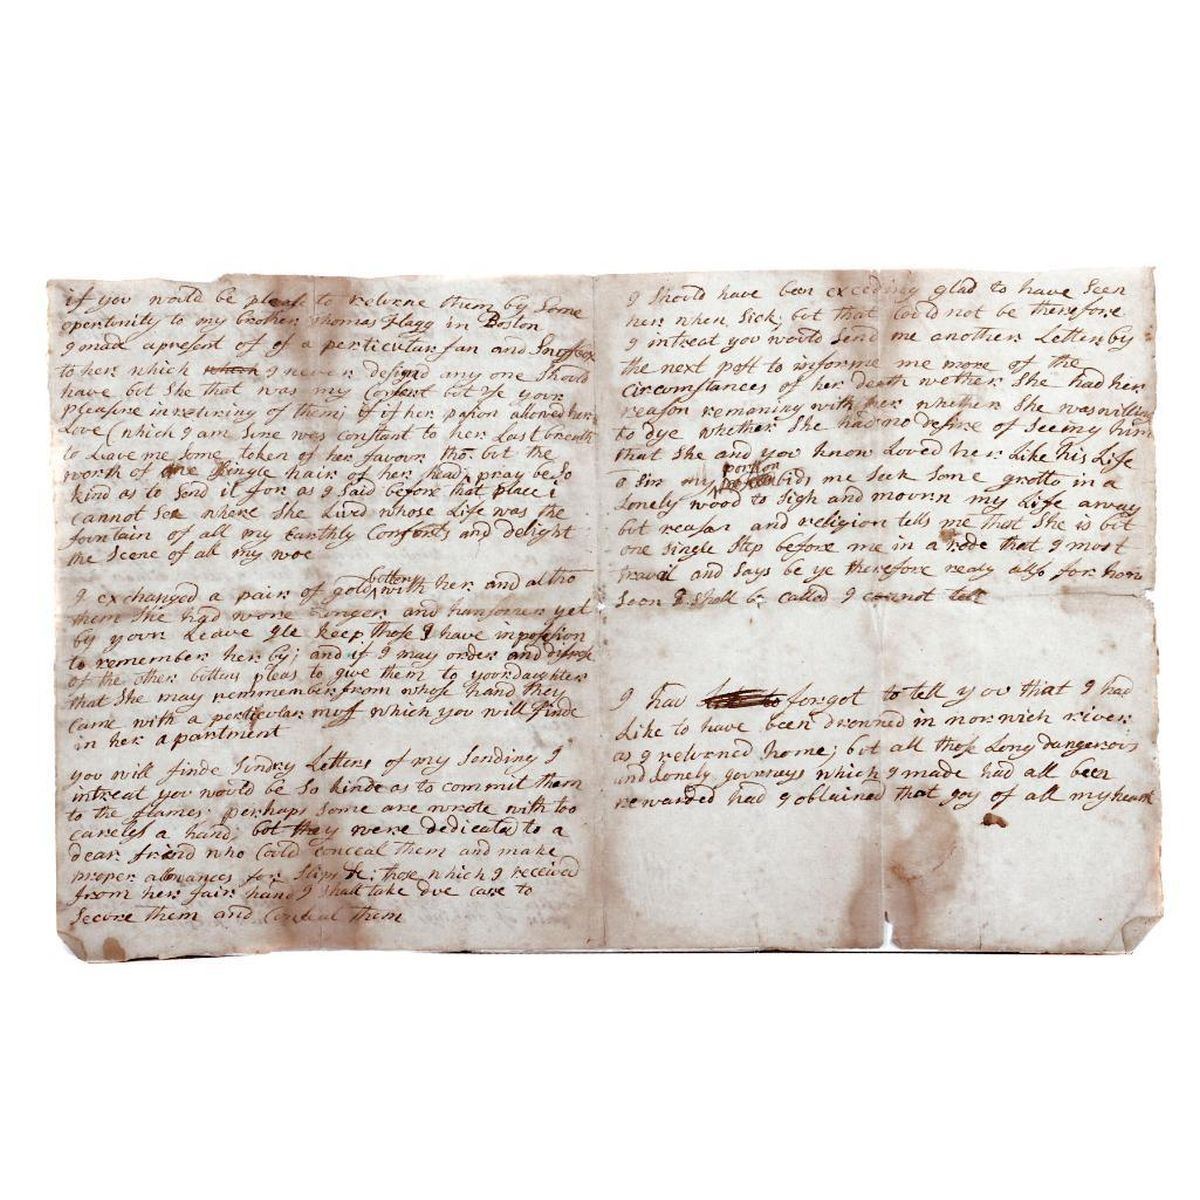 if you would be pleas to returne them by Some
opertunity to my brother Thomas Flagg in Boston
I mad a present of of a perticular fan and Snoffbox
to her which which I never desigd any one Should
have but She that was my Consort but Use your
pleasure in returing of them; if if her pasion alowed her
Love (which I am Sure was constant to her Last breath
to Leave me Some token of her favour tho but the
worth of one Single hair of her head; pray be So
kind as to Send it for as I Said before that place i
cannot See where She Lived whose Life was the
fountain of all my Earthly Comforts and delight
the Scene of all my woe
I exchanged a pair of gold bottens with her and altho
them She had wore Longer and hansomer yet
by your Leave Ile keep those I have in possesion
to remember her by; and if I may order and dispose
of the other bottens pleas to give them to your daughter
that She may remmember from whose hand they
came with a perticular muf which you will finde
in her apartment
you will finde Sundry Letters of my Sending I
intreat you would be So kinde as to commit them
to the flames; perhaps Some are wrote with too
careles a hand; bot they were dedicated to a
dear friend who Could conceal them and make
proper allowances for Slips &c; those which I received
from her fair hand I Shall take due care to
Secure them and Conceal them
I Should have been exceding glad to have Seen
her when Sick; but that Could not be therefore
I intreat you would Send me another Letter by
the next post to informe me more of the
circumstances of her death wether She had her
reason remaning with her whether She was willing
to dye whether She had no desire of Seeing him
that She and you know Loved her Like his Life
a Sir my pasion bids me Seek Some grotto in a
Lonely wood to Sigh and mourn my Life away
but reason and religion tells me that She is but
one Single Step before me in a rode that I most
travil and Says be ye therefore ready allso for how
Soon I shall be called I cannot tell
I hav forgot to tell you that I had
Like to have been drowned in norwich river
as I returned home; but all those Long dangerous
and Lonely journeys which I made had all been
rewarded had I obtained that joy of all my heart